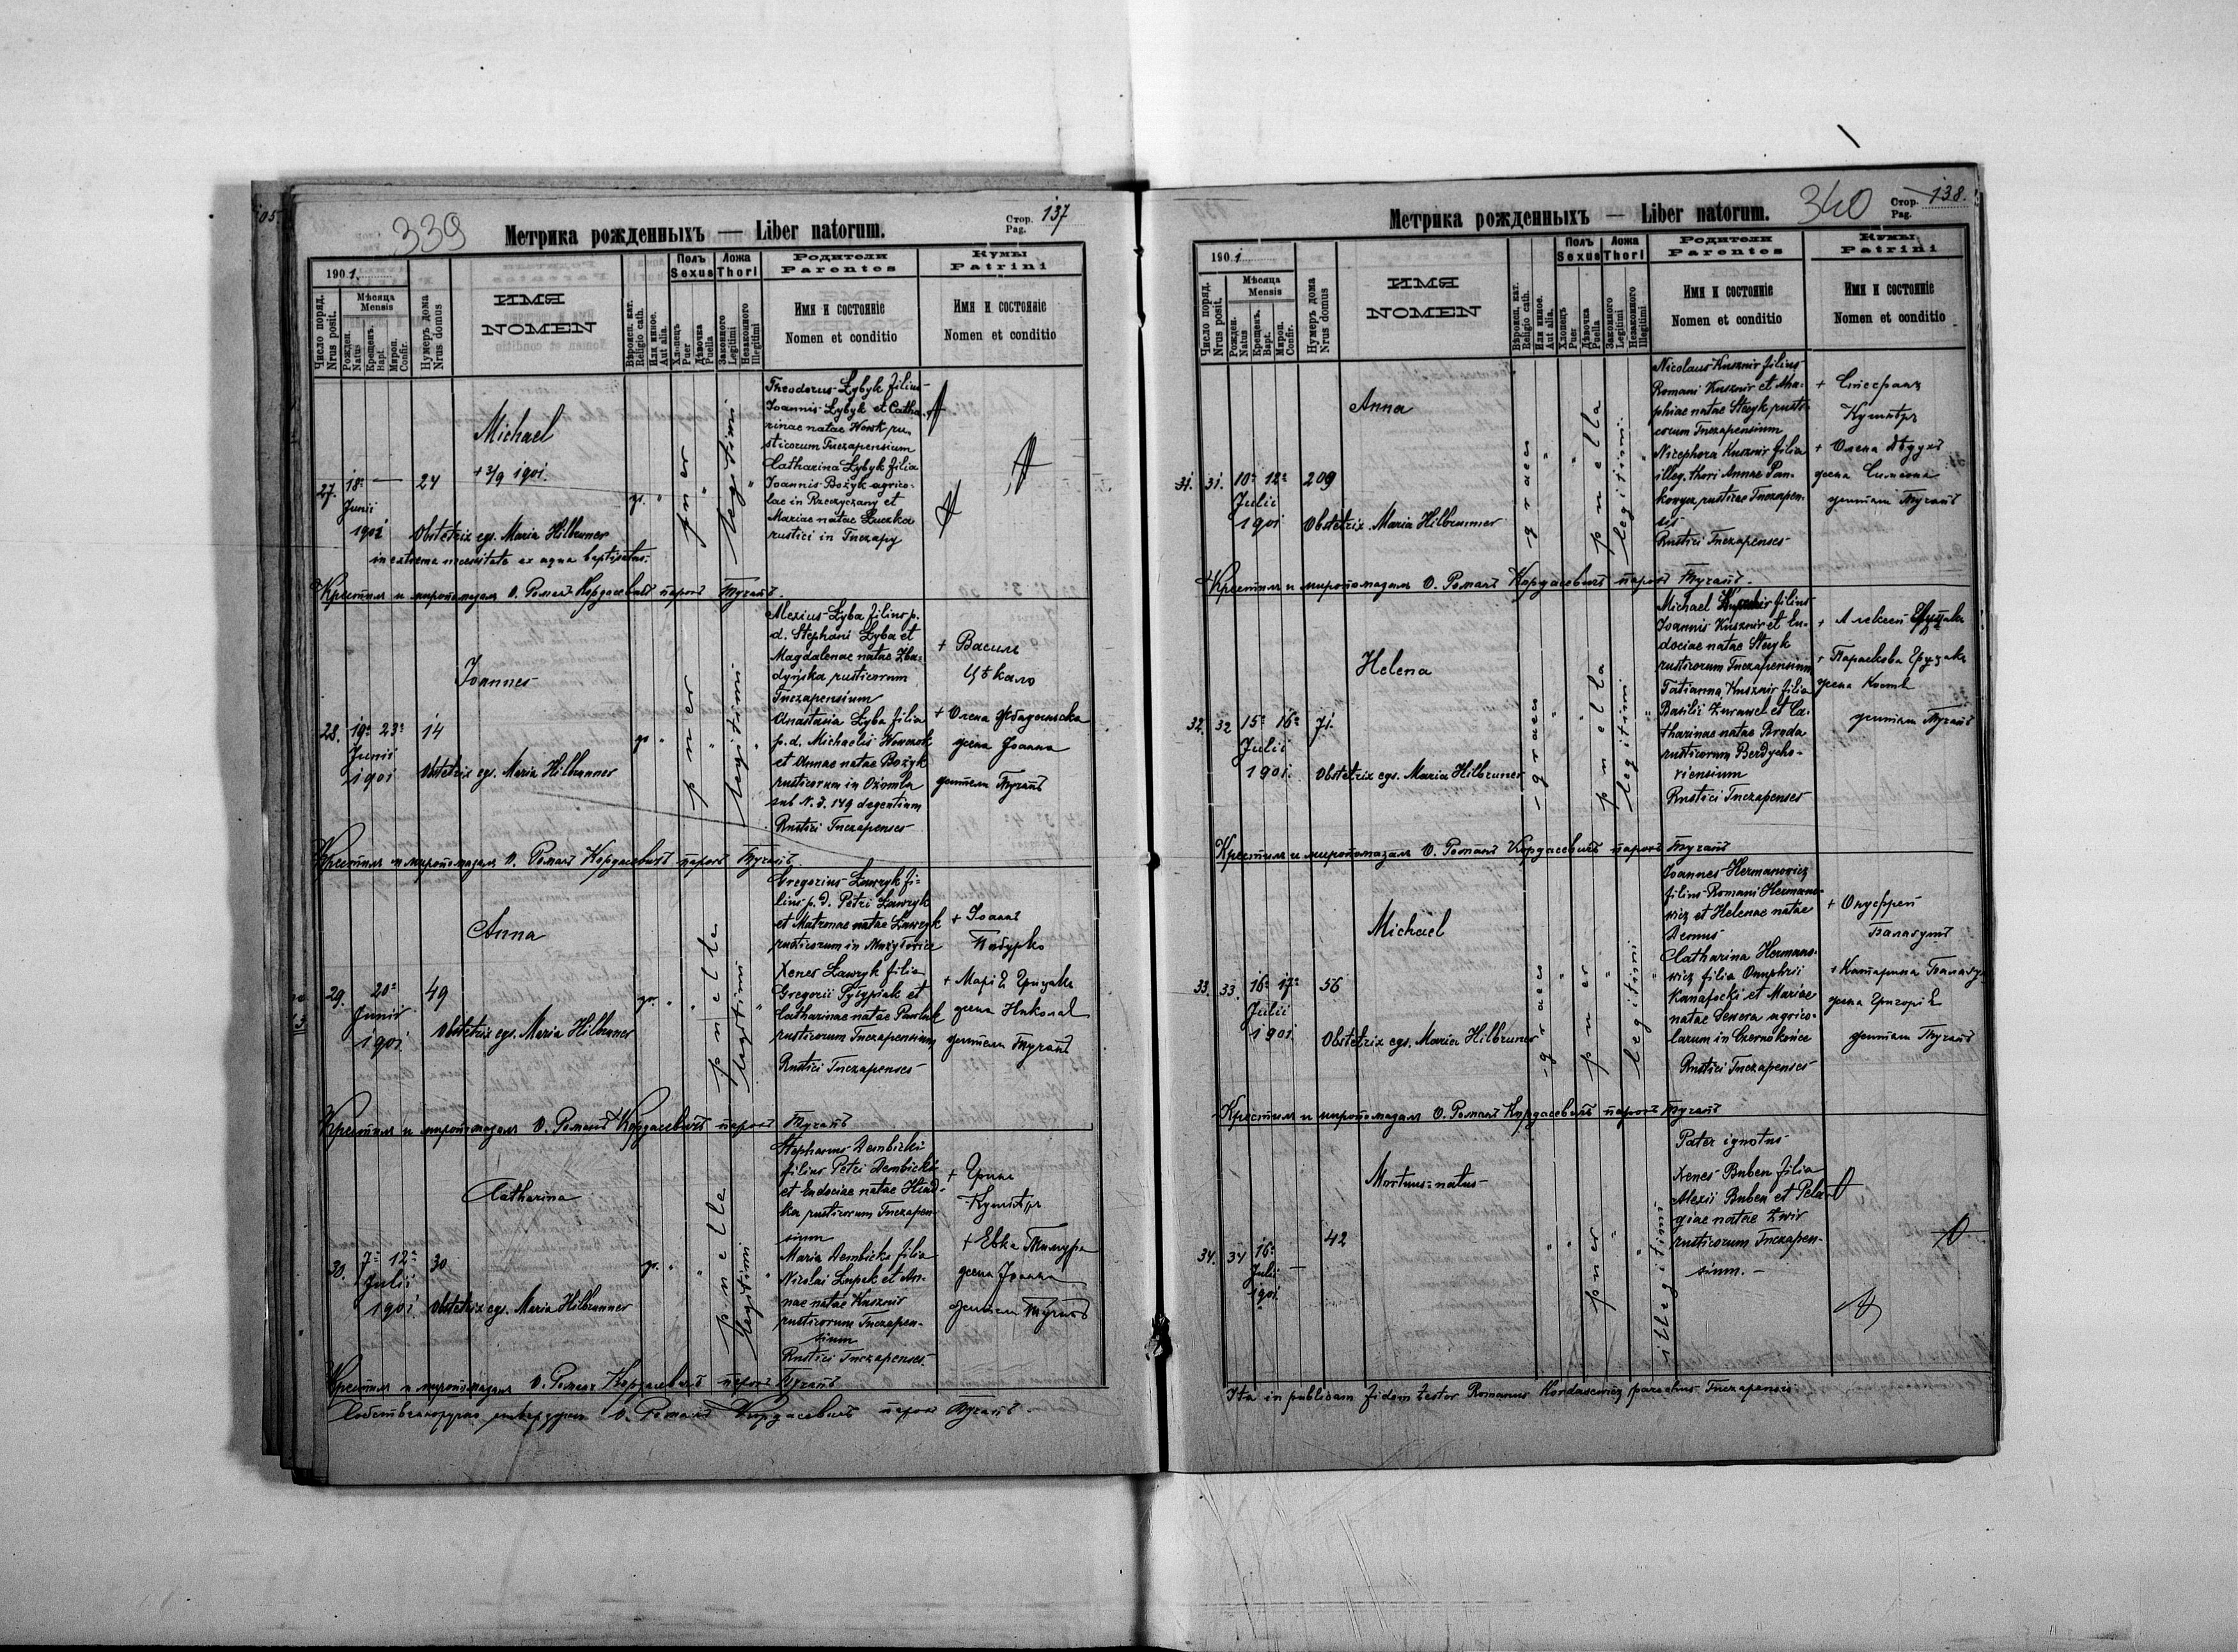 339
Метрика рожденныхъ — Liber natorum.
Стор. Pag. 137
1901.
Число поряд. Nrus posit.
Мѣсяца Mensis
Рожден. Natus
Крещенъ. Bapt.
Мироп. Confir.
Нумеръ дома Nrus domus
ИМЯ
NOMEN
Вѣроисп. кат. Religio cath.
Или инное. Aut alia.
Полъ Sexus
Хлопецъ Puer
Дѣвочка Puella
Ложа Thori
Законного Legitimi
Незаконного Illegitimi
Родители
Parentes
Имя и состояніе
Nomen et conditio
Кумы
Patrini
Имя и состояніе
Nomen et conditio
27. 18a — Junii 1901
24
Michael
+ 3/9 1901.
Obstetrix egs. Maria Hilbruner
in extrema necessitate ex aqua baptisatus.
gr. "
puer
legitimi
Theodorus Łybyk filius
Joannis Łybyk et Catha-
rinae natae Howk ru-
sticorum Tuczapensium
Catharina Łybyk filia
Joannis Bożyk agrico-
lae in Rzeczyczany et
Mariae natae Łuczka
rustici in Tuczapy
Крестилъ и миропомазалъ О. Романъ Кордасевичъ парохъ Тучапъ.
28. 19a 23a Junii 1901
14
Joannes
Obstetrix egs. Maria Hilbrunner
gr. "
puer
legitimi
Alexius Łyba filius p.
d. Stephani Łyba et
Magdalenae natae Zba-
dyńska rusticorum
Tuczapensium
Anastasia Łyba filia
p. d. Michaelis Howczok
et Annae natae Bożyk
rusticorum in Ożomla
sub N. d. 149 degentium
Rustici Tuczapenses
+ Василь
Цѣкало
+ Олена
жена Іоанна
жители Тучапъ
Крестилъ и миропомазалъ О. Романъ Кордасевичъ парохъ Тучапъ.
29. 20a Junii 1901
49
Anna
Obstetrix egs. Maria Hilbruner
gr. "
puella
legitimi
Gregorius Ławryk fi-
lius p. d. Petri Ławryk
et Matronae natae Ławryk
rusticorum in Mużyłowice
Xenes Ławryk filia
Gregorii Pyłypiak et
Catharinae natae Pawluk
rusticorum Tuczapensium
Rustici Tuczapenses
+ Іоаннъ
+ Маріѣ Грицакъ
жена Николай
жители Тучапъ
Крестилъ и миропомазалъ О. Романъ Кордасевичъ парохъ Тучапъ
30. 7a 12a Julii 1901
30
Catharina
Obstetrix egs. Maria Hilbrunner
gr. "
puella
legitimi
Stephanus Dembicki
filius Petri Dembicki
et Eudociae natae Hład-
ka rusticorum Tuczapen-
sium
Maria Dembicka filia
Nicolai Łupak et An-
nae natae Kusznir
rusticorum Tuczapen-
sium
Rustici Tuczapenses
+ Гринь
Кушнѣръ
+ Евка
жена Іоанна
жители Тучапъ
Крестилъ и миропомазалъ О. Романъ Кордасевичъ парохъ Тучапъ
О. Романъ Кордасевичъ парохъ Тучапъ.
Метрика рожденныхъ — Liber natorum.
340
Стор. Pag. 138.
1901
Число поряд. Nrus posit.
Мѣсяца Mensis
Рожден. Natus
Крещенъ. Bapt.
Мироп. Confir.
Нумеръ дома Nrus domus
ИМЯ
NOMEN
Вѣроисп. кат. Religio cath.
Или инное. Aut alia.
Полъ Sexus
Хлопецъ Puer
Дѣвочка Puella
Ложа Thori
Законного Legitimi
Незаконного Illegitimi
Родители
Parentes
Имя и состояніе
Nomen et conditio
Кумы
Patrini
Имя и состояніе
Nomen et conditio
31. 31. 10a 12a Julii 1901
209
Anna
Obstetrix. Maria Hilbrunner
graec
puella
legitimi
Nicolaus Kusznir filius
Romani Kusznir et Ma-
phiae natae Stecyk rusti-
corum Tuczapensium
Nicephora Kusznir filia
illeg. thori Annae Pan-
konycz, rusticae Tuczapen-
sis
Rustici Tuczapenses
+ Стефанъ
Кушнѣръ
+ Олена Дѣдухъ
жена Симеона
жители Тучапъ
Крестилъ и миропомазалъ О. Романъ Кордасевичъ парохъ Тучапъ.
32. 32 15a 16a Julii 1901.
71.
Helena
Obstetrix egs. Maria Hilbruner
graec
puella
legitimi
Michael Kusznir filius
Joannis Kusznir et Eu-
dociae natae Stecyk
rusticorum Tuczapensium
Tatianna Kusznir filia
Basilii Żurawel et Ca-
tharinae natae Broda
rusticorum Berdycho-
viensium
Rustici Tuczapenses
+ Алексей
+ Параскева Грицакъ
жена
жители Тучапъ
Крестилъ и миропомазалъ О. Романъ Кордасевичъ парохъ Тучапъ
33. 33. 16a 17a Julii 1901
56
Michael
Obstetrix egs. Maria Hilbruner
graec
puer
legitimi
Joannes Hermanowicz
filius Romani Hermano-
wicz et Helenae natae
Demus
Catharina Hermano-
wicz filia Onuphrii
Kanafocki et Mariae
natae Dewera agrico-
larum in Czernokońce
Rustici Tuczapenses
+ Онуфрей
Балагутъ
+ Катарина
жена Григоріѣ
жители Тучапъ
Крестилъ и миропомазалъ О. Романъ Кордасевичъ парохъ Тучапъ
34. 34 16a Julii — 1901
42
Mortuus=natus
puer
illegitimi
Pater ignotus
Xenes Buben filia
Alexii Buben et Pela-
giae natae Żwir
rusticorum Tuczapen-
sium. —
Ita in publicam fidem testor Romanus Kordasewicz parochus Tuczapensis